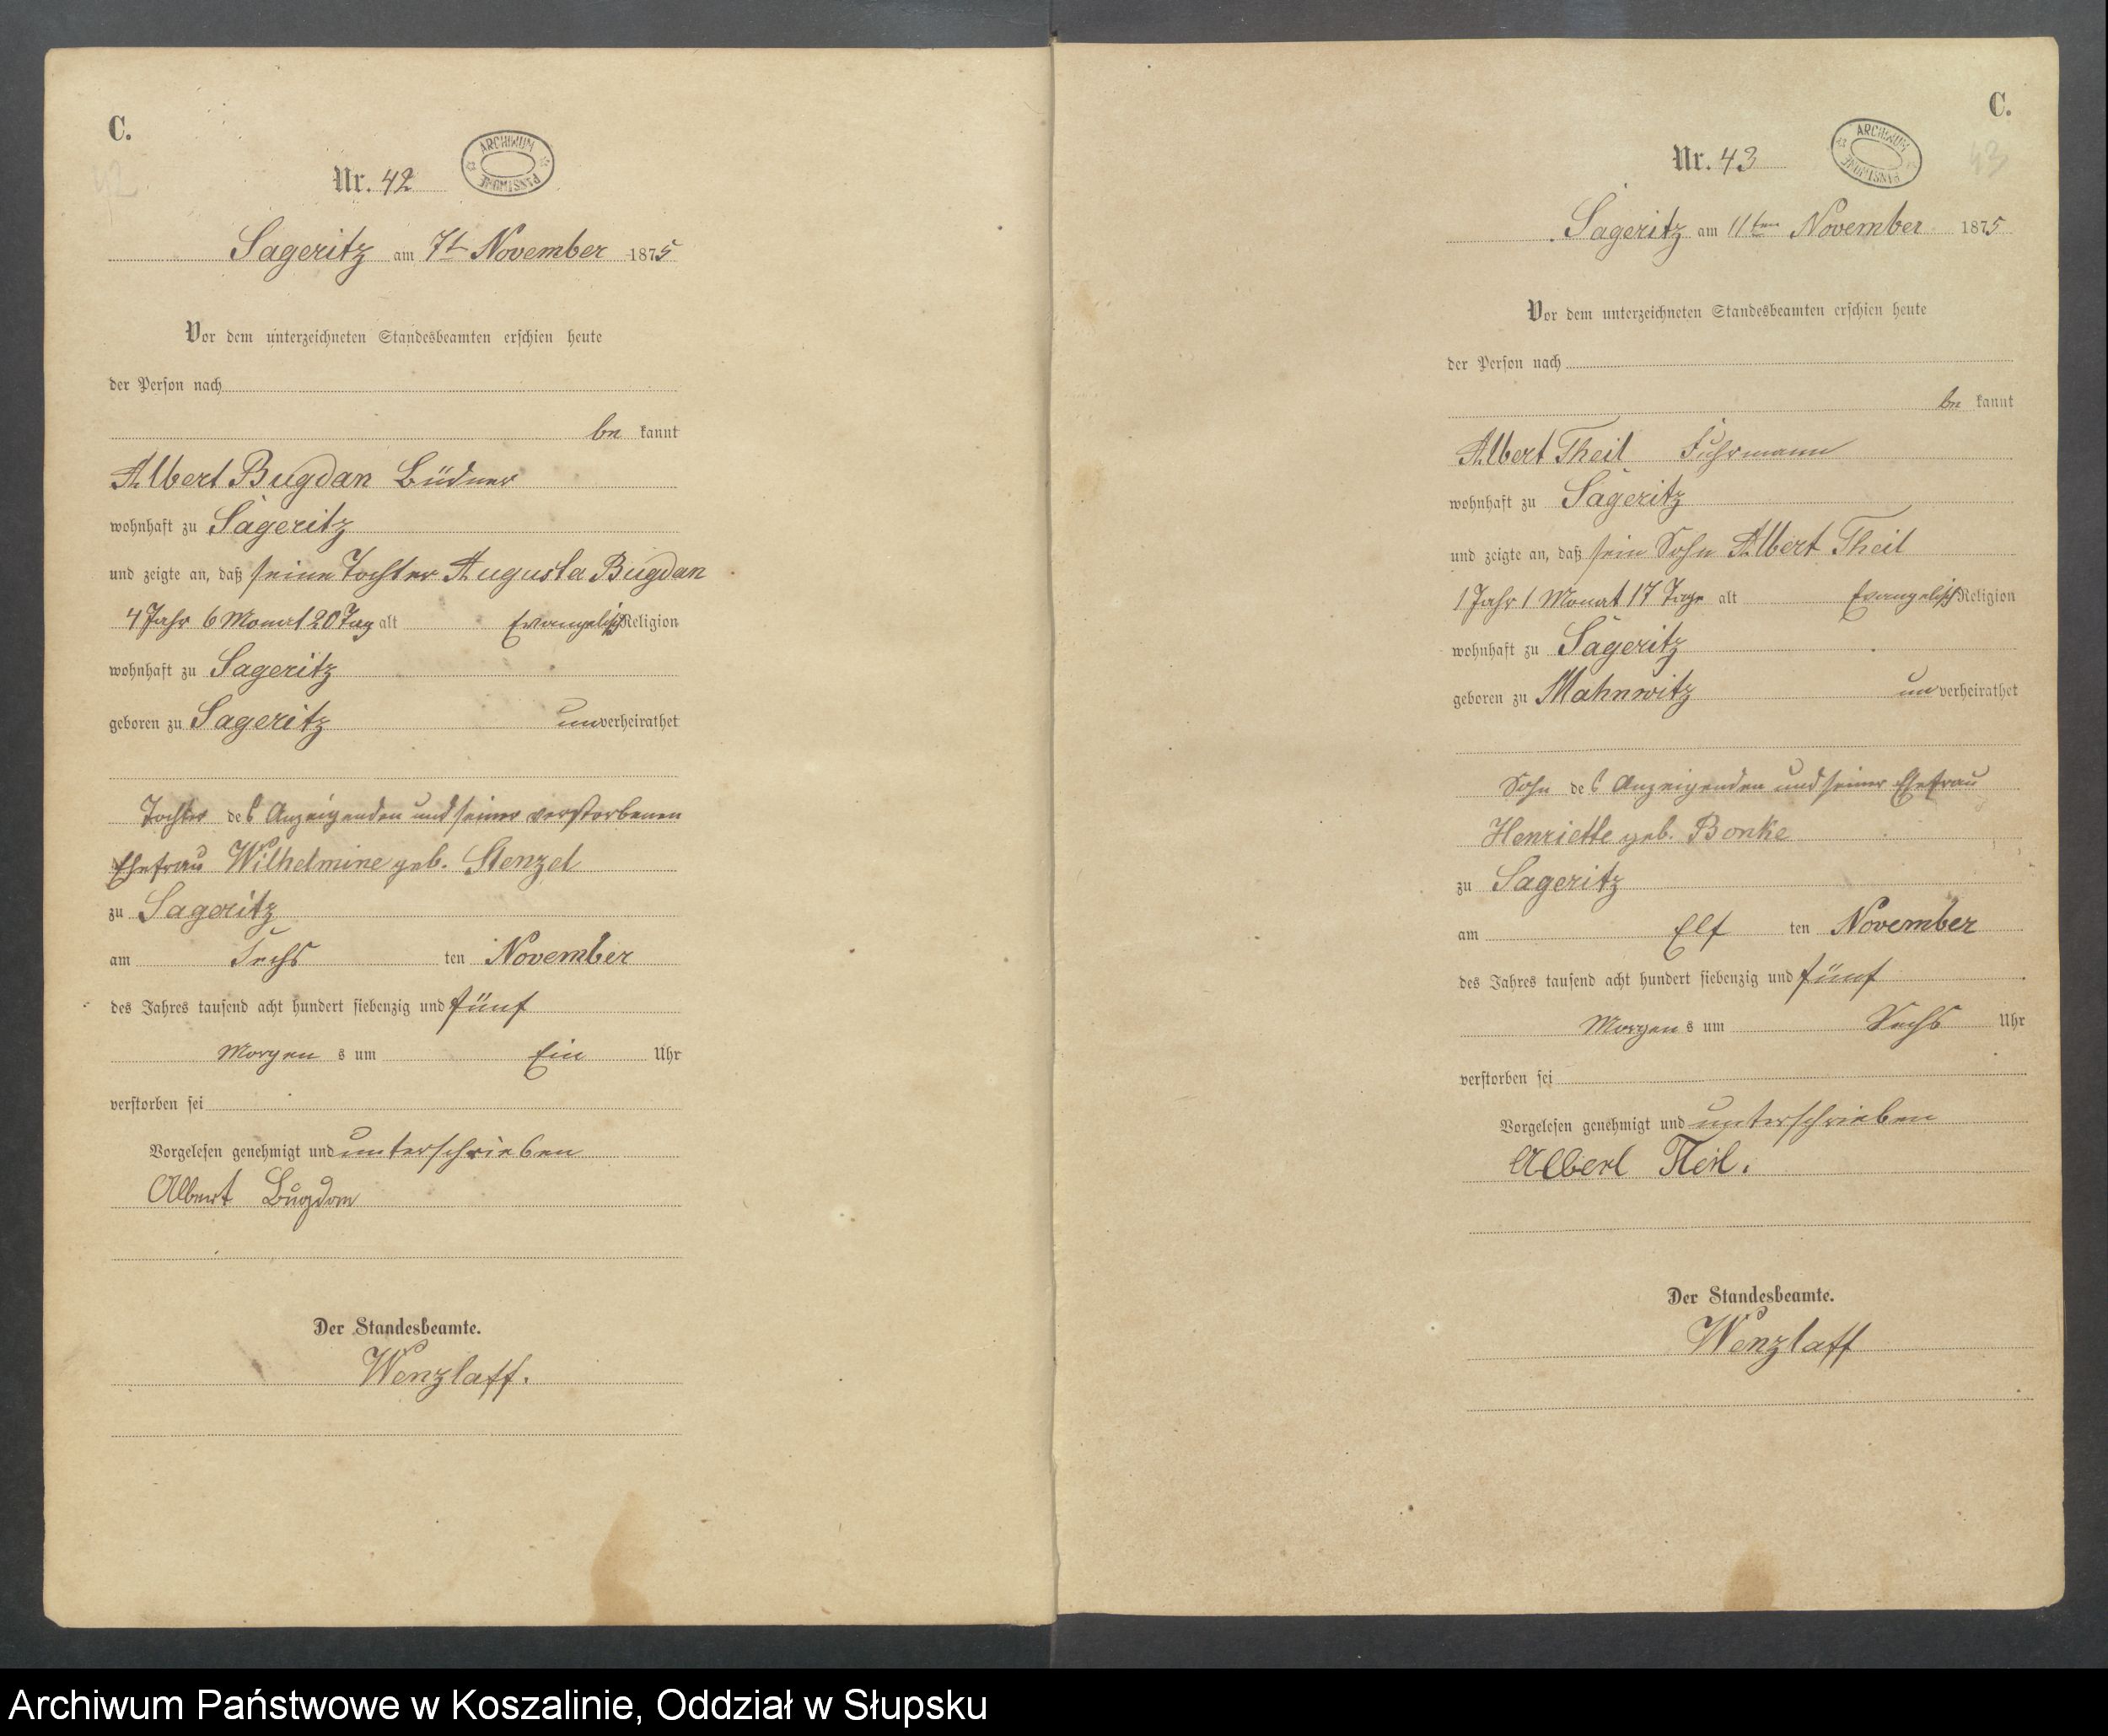 C.
42
Nr. 42
ARCHIWUM PAŃSTWOWE
Sageritz am 7t November 1875
Vor dem unterzeichneten Standesbeamten erschien heute
der Person nach
be kannt
Albert Bugdan Büdner
wohnhaft zu Sageritz
und zeigte an, daß seine Tochter Augusta Bugdan
4 Jahr 6 Monat 20 Tag alt Evangelisch Religion
wohnhaft zu Sageritz
geboren zu Sageritz unverheirathet
Tochter des Anzeigenden und seiner verstorbenen
Ehefrau Wilhelmine geb. Stenzel
zu Sageritz
am Sechs ten November
des Jahres tausend acht hundert siebenzig und fünf
Morgen s um Ein Uhr
verstorben sei
Vorgelesen genehmigt und unterschrieben
Albert Bugdan
Der Standesbeamte.
Wenzlaff.
C.
43
Nr. 43
ARCHIWUM PAŃSTWOWE
Sageritz am 11ten November 1875
Vor dem unterzeichneten Standesbeamten erschien heute
der Person nach
be kannt
Albert Theil Fuhrmann
wohnhaft zu Sageritz
und zeigte an, daß sein Sohn Albert Theil
1 Jahr 1 Monat 17 Tage alt Evangelisch Religion
wohnhaft zu Sageritz
geboren zu Mahnwitz unverheirathet
Sohn des Anzeigenden und seiner Ehefrau
Henriette geb. Bonke
zu Sageritz
am Elf ten November
des Jahres tausend acht hundert siebenzig und fünf
Morgen s um Sechs Uhr
verstorben sei
Vorgelesen genehmigt und unterschrieben
Albert Theil.
Der Standesbeamte.
Wenzlaff
Archiwum Państwowe w Koszalinie, Oddział w Słupsku